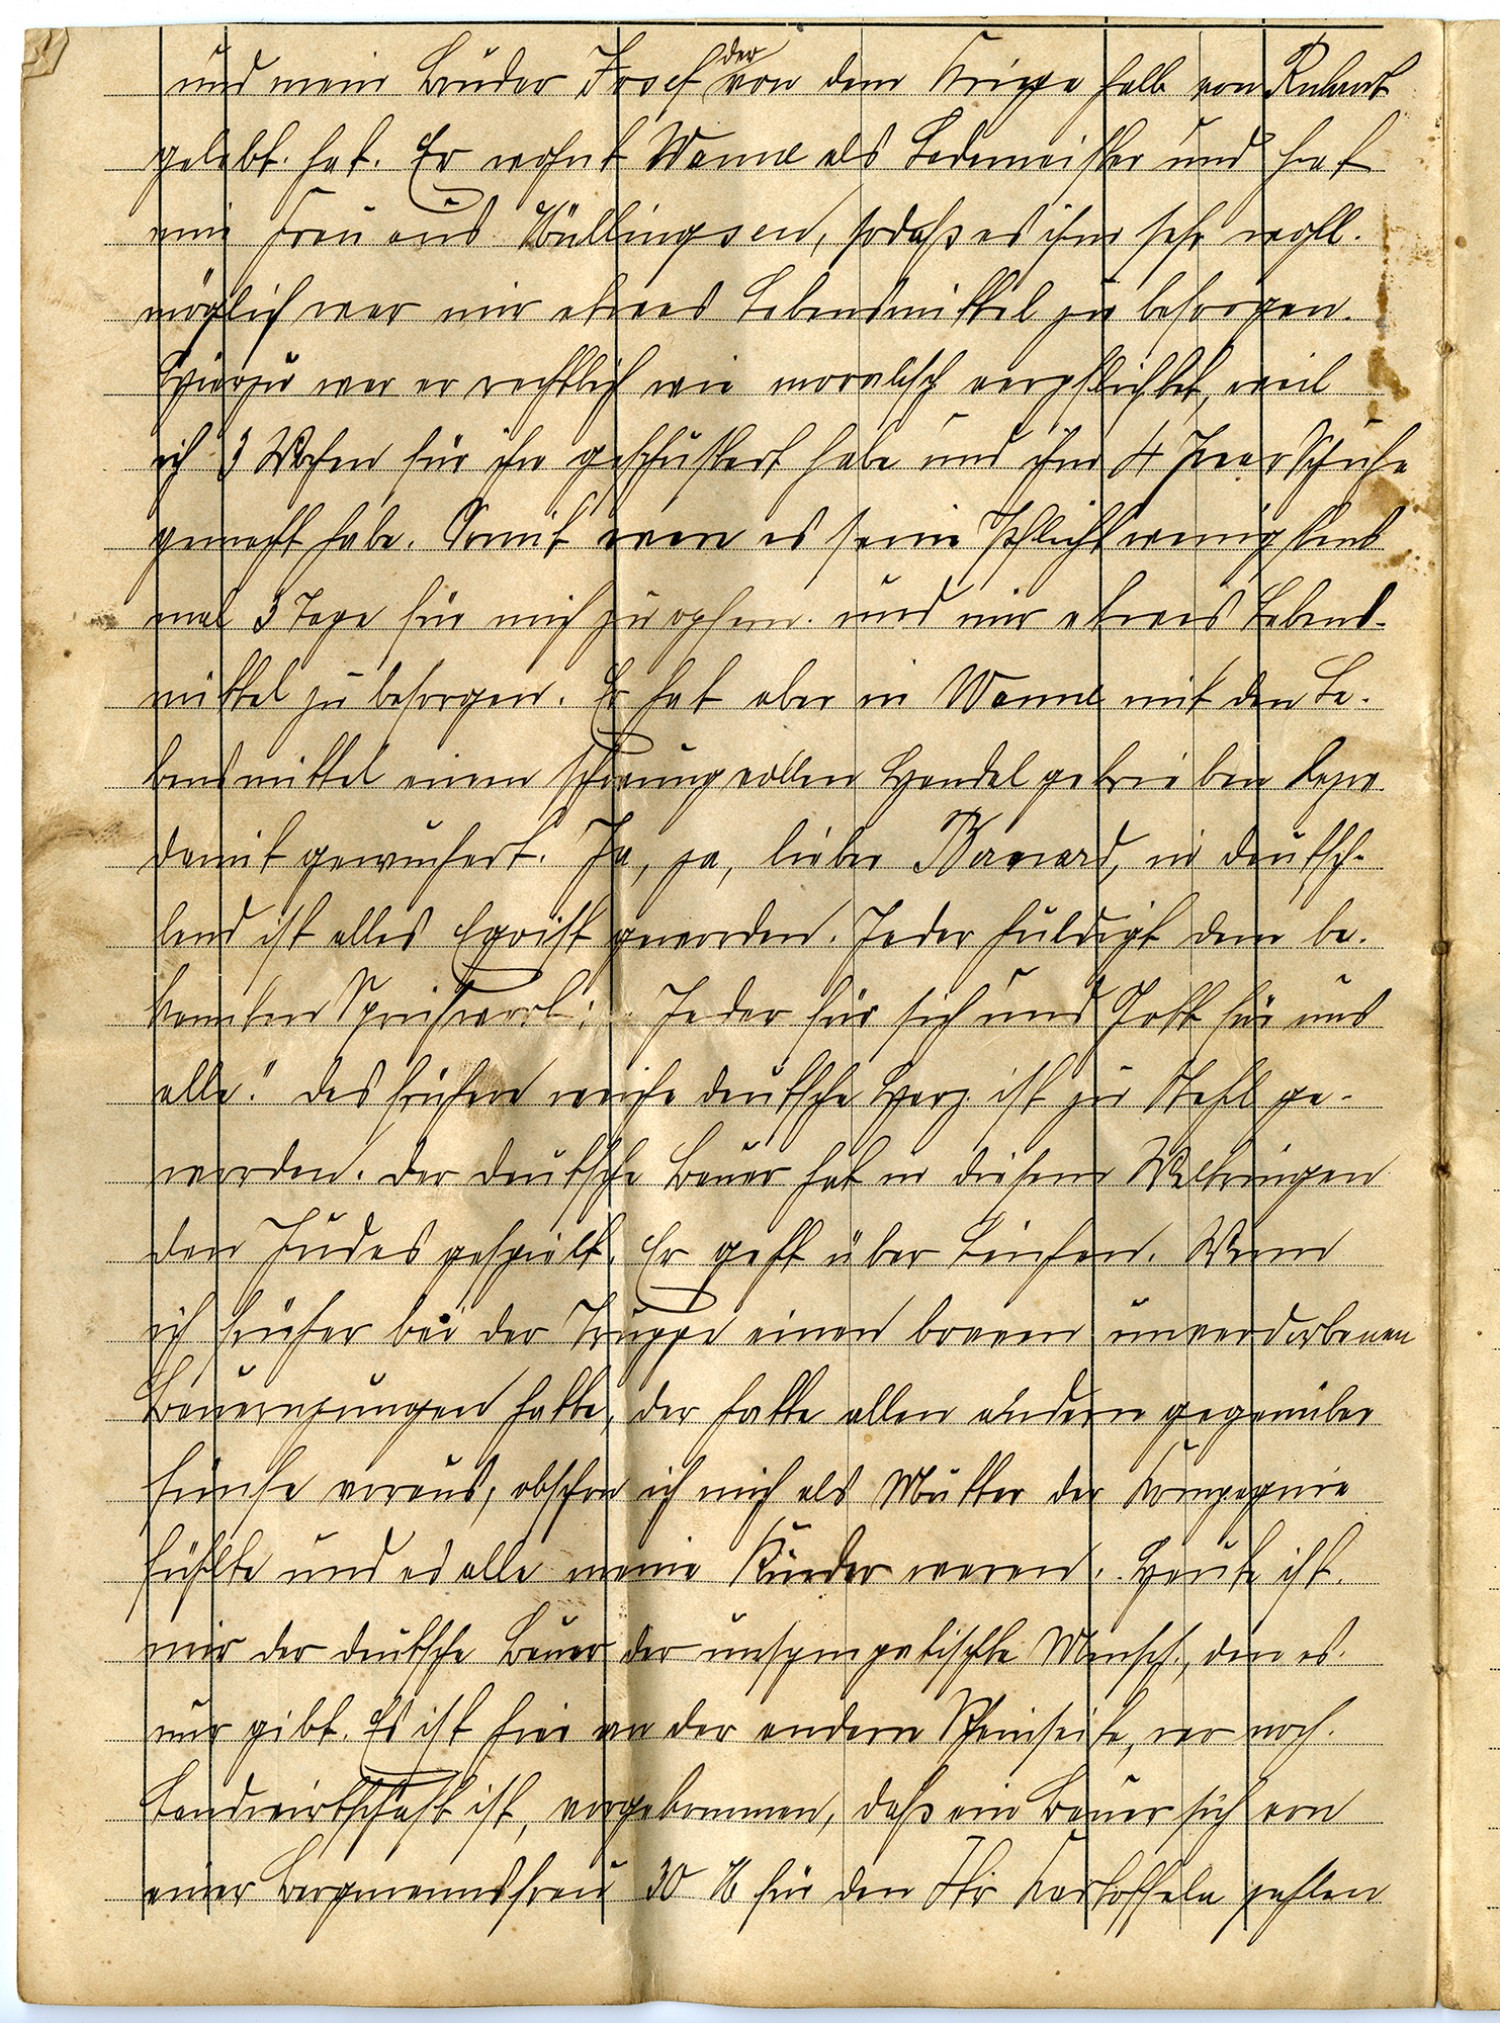 und mein Bruder Josef der von dem Kriege halb von Ruhart
gelebt. hat. Er wohnt Wanne als Lademeister und hat
eine Frau aus Hüllingsen, sodaß es ihm sehr wohl.
möglich war mir etwas Lebensmittel zu besorgen.
Hierzu war er rechtlich wie moralisch verpflichtet, weil
ich 3 Wochen für ihn geschustert habe und ihm 4 Paar Schuhe
gemacht habe. Somit ware es seine Pflicht wenigstens
mal 3 Tage für mich zu opfern. und mir etwas Lebens-
mittel zu besorgen. Er hat aber in Wanne mit den Le-
bensmittel einem schwungvollen Handel getrieben bezw.
damit gewuchert. Ja, ja, lieber Bernard, in Deutsch-
land ist alles Egoist geworden. Jeder huldigt dem be-
kannten Sprichwort: „Jeder für sich und Gott für uns
alle." Das frühere weiche deutsche Herz ist zu Stahl ge-
worden. Der deutsche Bauer hat in diesem Weltringen
den Judas gespielt. Er geht über Leichen. Wenn
ich früher bei der Truppe einen braven unverdorbenen
Bauernjungen hatte, der hatte allen andern gegenüber
fünfe voraus, obschon ich mich als Mutter der Kompagnie
fühlte und es alle meine Kinder waren. Heute ist
mir der deutsche Bauer der unsympatischte Mensch, den es
nur gibt. Es ist hier an der andern Rheinseite, wo noch
Landwirtschaft ist, vorgekommen, daß ein Bauer sich von
einer Bergmannsfrau 30 M für den Ztr Kartoffeln zahlen